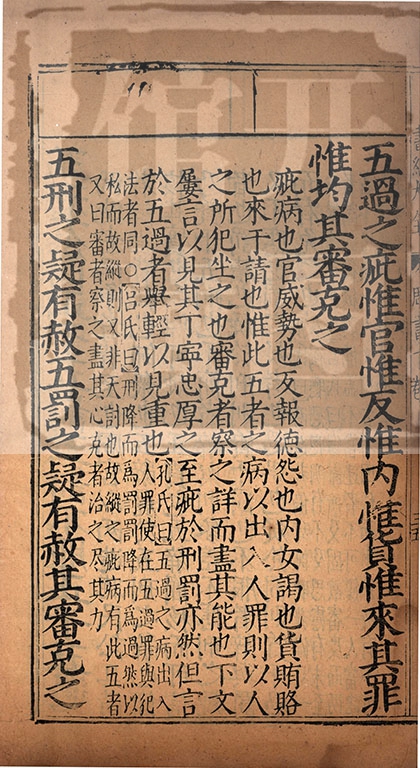 五過之疵惟官惟反惟内惟貨惟來其罪
惟均其審克之
疵病也官威勢也反報德怨也内女謁也貨賄賂
也來干請也惟此五者之病以出入人罪則以人
之所犯坐之也審克者察之詳而盡其能也下文
屢言以見其丁寧忠厚之至疵於刑罰亦然但言
於五過者舉輕以見重也孔氏曰五過之病出入
人罪使在五過罪與犯
法者同○吕氏曰刑降而爲罰罰降而爲過然以
私而故縱則又非天討也故縱之疵病有此五者
又曰審者察之盡其心克者治之尽其力
五刑之疑有赦五罰之疑有赦其審克之